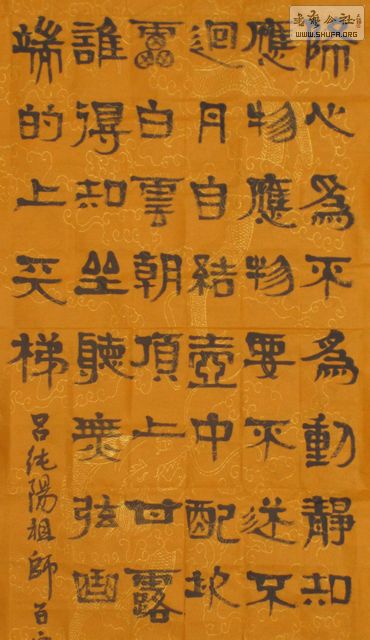 降心爲不爲動靜知
應物應物要不迷不
迴丹自結壺中配坎
雷白雲朝頂上甘露
誰得知坐聽無弦曲
端的上天梯
呂純陽祖師百字
书法公社
WWW.SHUFA.ORG